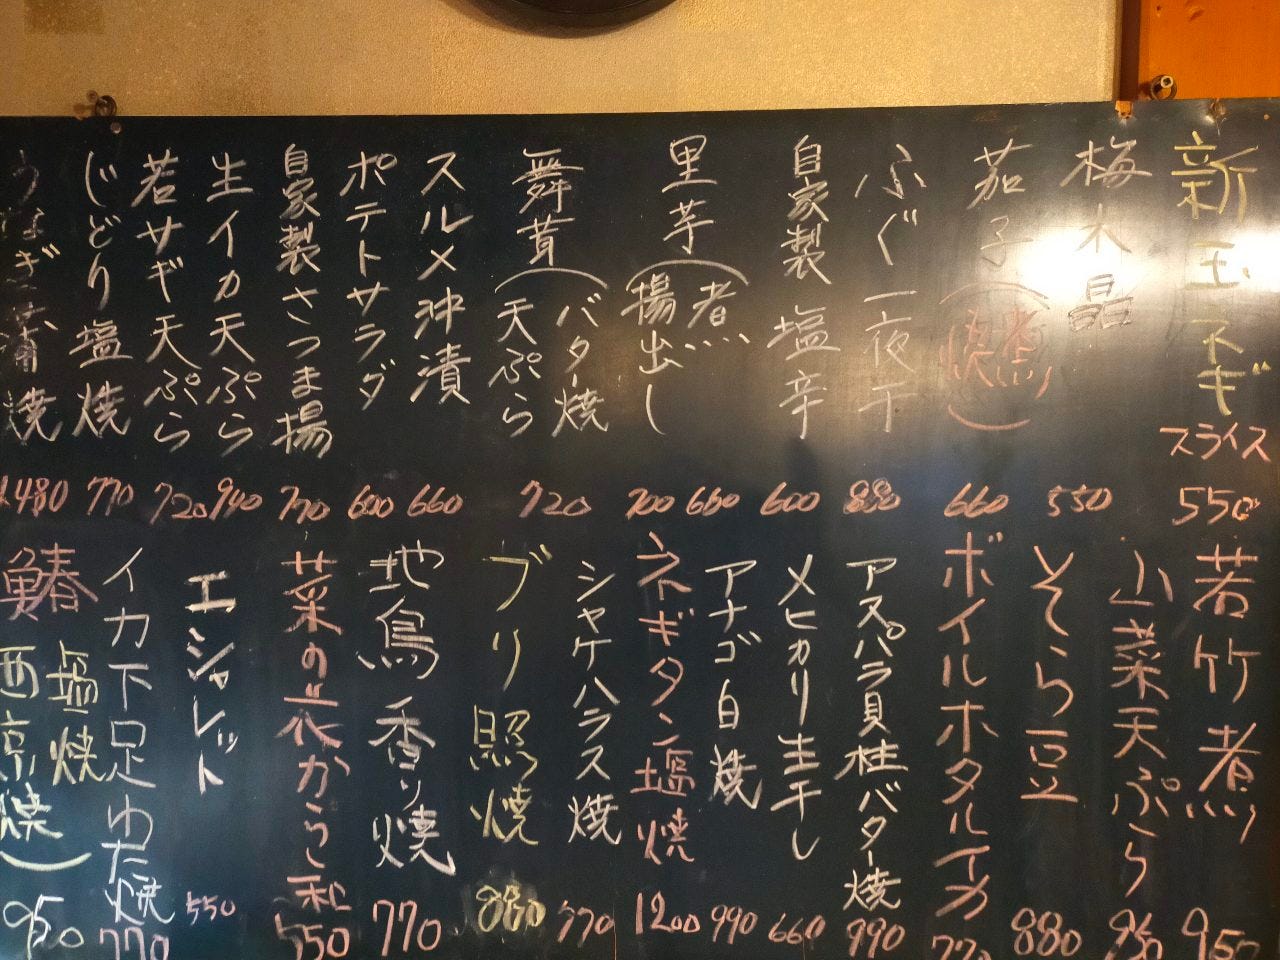 新玉ネギ
スライス
550
梅水晶
550
茄子(煮 焼)
660
ふぐ一夜干
880
自家製塩辛
600
里芋(煮 揚出し)
660
700
舞茸(バター焼 天ぷら)
720
スルメ沖漬
660
ポテトサラダ
600
自家製さつま揚
770
生イカ天ぷら
940
若サギ天ぷら
720
じどり塩焼
770
うなぎ蒲焼
480
若竹煮
950
山菜天ぷら
950
そら豆
880
ボイルホタルイカ
770
アスパラ貝柱バター焼
990
メヒカリ生干し
660
アナゴ白焼
990
ネギタン塩焼
1200
シャケハラス焼
770
ブリ照焼
880
地鳥香り焼
770
菜の花からし和
550
エシャレット
550
イカ下足わた焼
770
鰆 塩焼 西京焼)
950